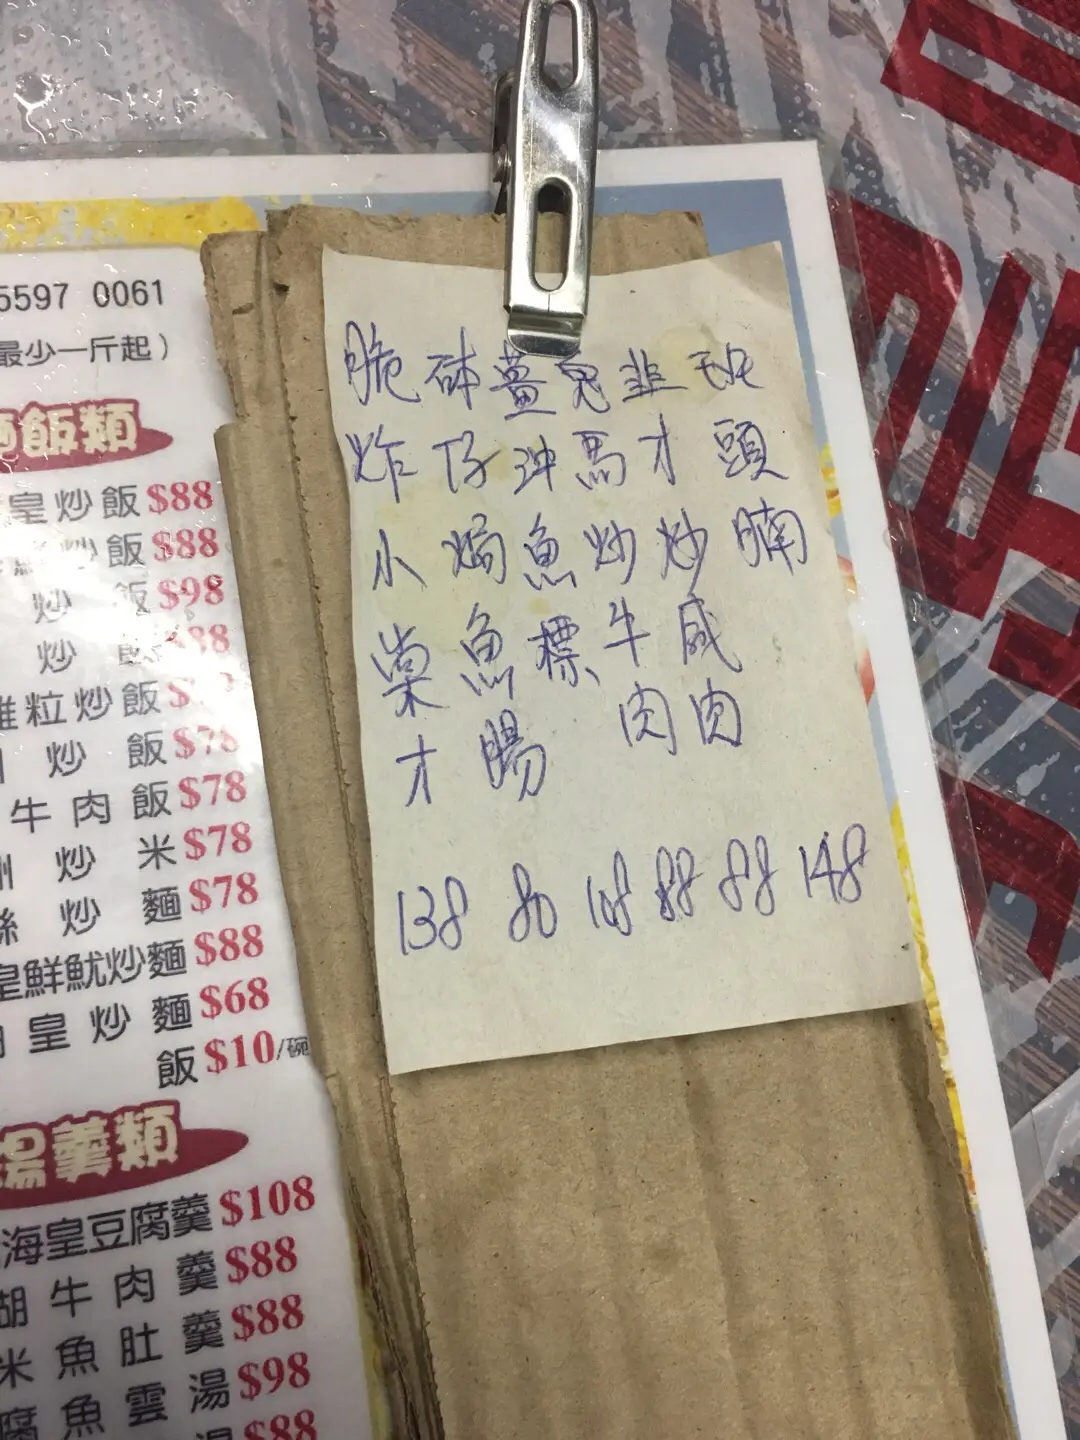 5597 0061
最少一斤起）
飯類
皇炒飯 $88
炒飯 $88
炒 飯 $98
炒 飯 $88
粒炒飯
炒 飯 $78
牛肉飯 $78
炒 米 $78
炒 麵 $78
皇鮮魷炒麵 $88
皇炒麵 $68
飯 $10/碗
湯羹類
海皇豆腐羹 $108
湖牛肉羹 $88
米魚肚羹 $88
腐魚雲湯 $98
湯 $88
脆炸小棠才 138
砵仔焗魚腸 80
薑沖魚標 108
凫馬炒牛肉 88
韮才炒咸肉 88
班頭腩 148